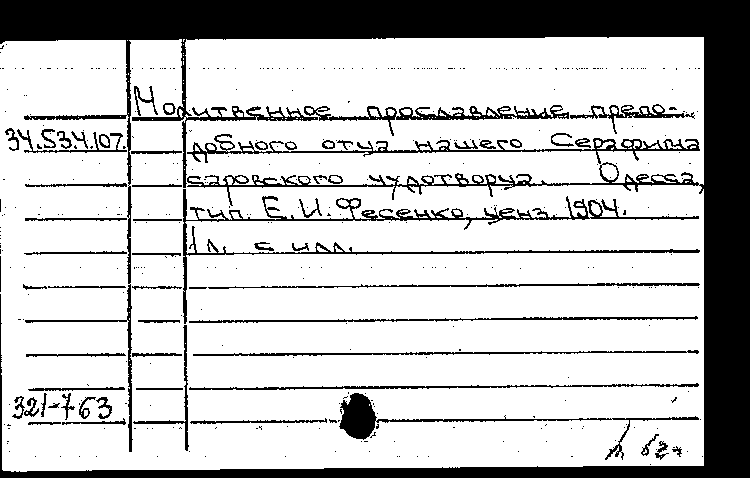 Молитвенное прославление препо-
34.53.4.107. добного отца нашего Серафима
саровского чудотворца. Одесса,
тип. Е.И. Фесенко, ценз. 1904.
1 л. с илл.
321-763